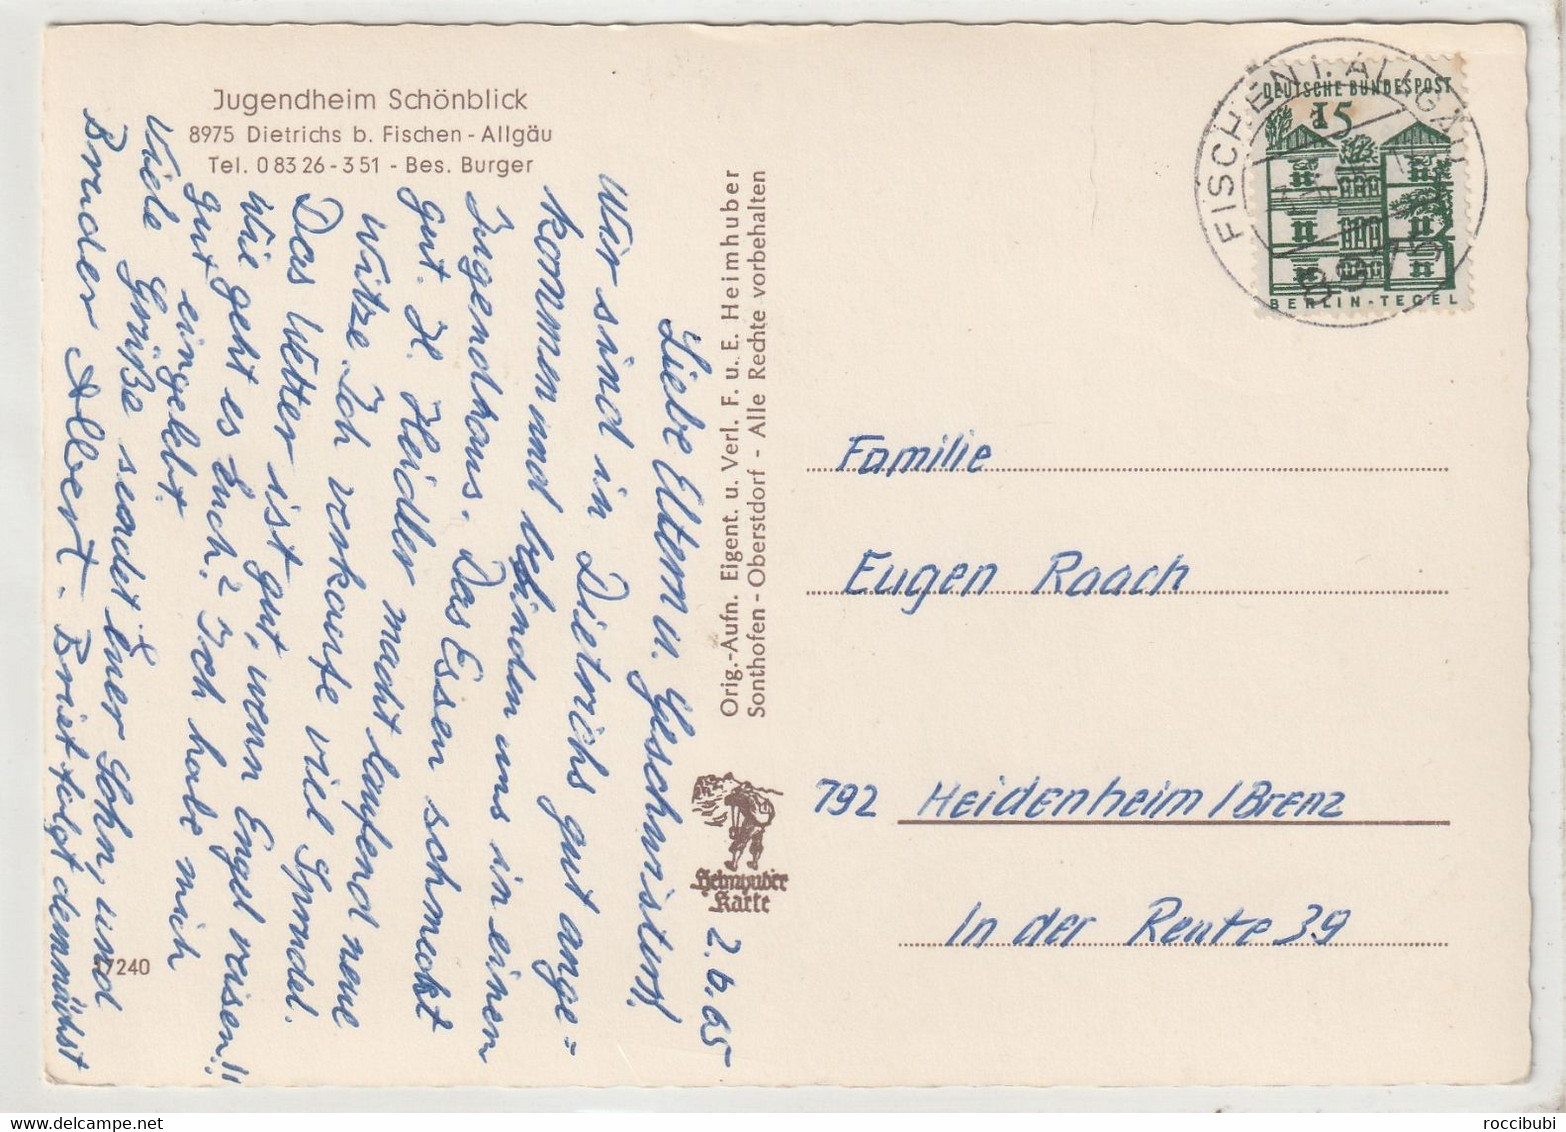 Jugendheim Schönblick
8975 Dietrichs b. Fischen - Allgäu
Tel. 0 83 26 - 3 51 - Bes. Burger
2.6.65
Liebe Eltern u. Geschwister!
Wir sind in Dietrichs gut ange=
kommen und befinden uns in einen
Jugendhaus. Das Essen schmeckt
gut. H. Heidler macht laufend neue
Witze. Ich verkaufe viel Sprudel.
Das Wetter ist gut, wenn Engel reisen!!
Wie geht es Euch? Ich habe mich
gut eingelebt.
Viele Grüße sendet Euer Sohn, und
Bruder Albert. Brief folgt demnächst
17240
Orig.-Aufn. Eigent. u. Verl. F. u. E. Heimhuber
Sonthofen - Oberstdorf - Alle Rechte vorbehalten
Heimhuber
Karte
DEUTSCHE BUNDESPOST
15
BERLIN-TEGEL
FISCHEN i. ALLGÄU
8975
Familie
Eugen Raach
792 Heidenheim / Brenz
In der Reute 39
roccibubi